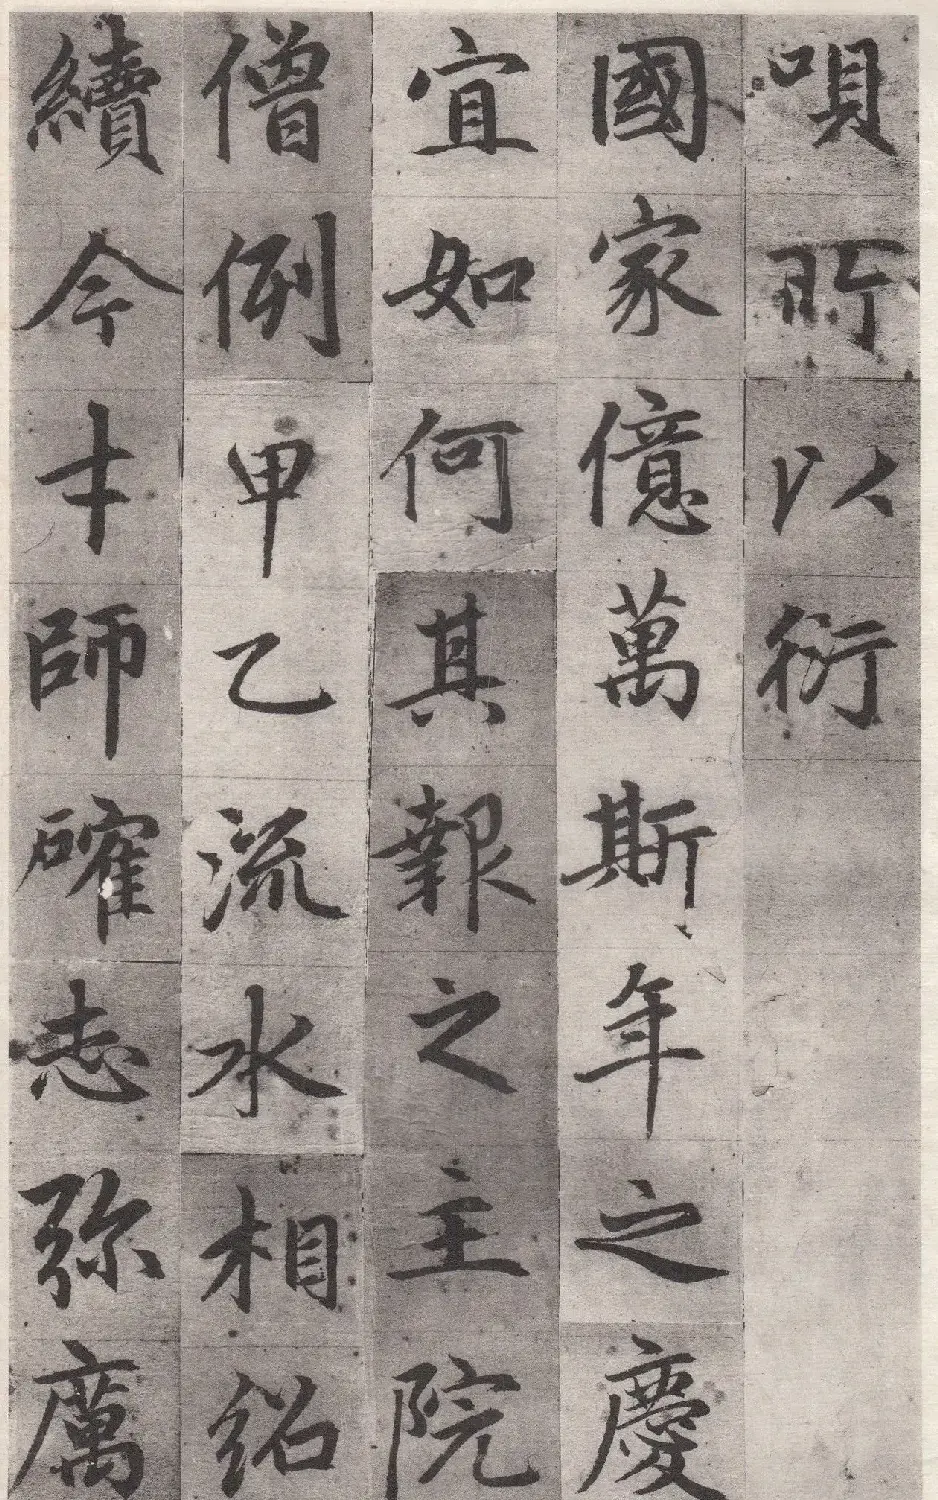 唄所以衍
國家億萬斯年之慶
宜如何其報之主院
僧例甲乙流水相紹
續今才師確志弥厲